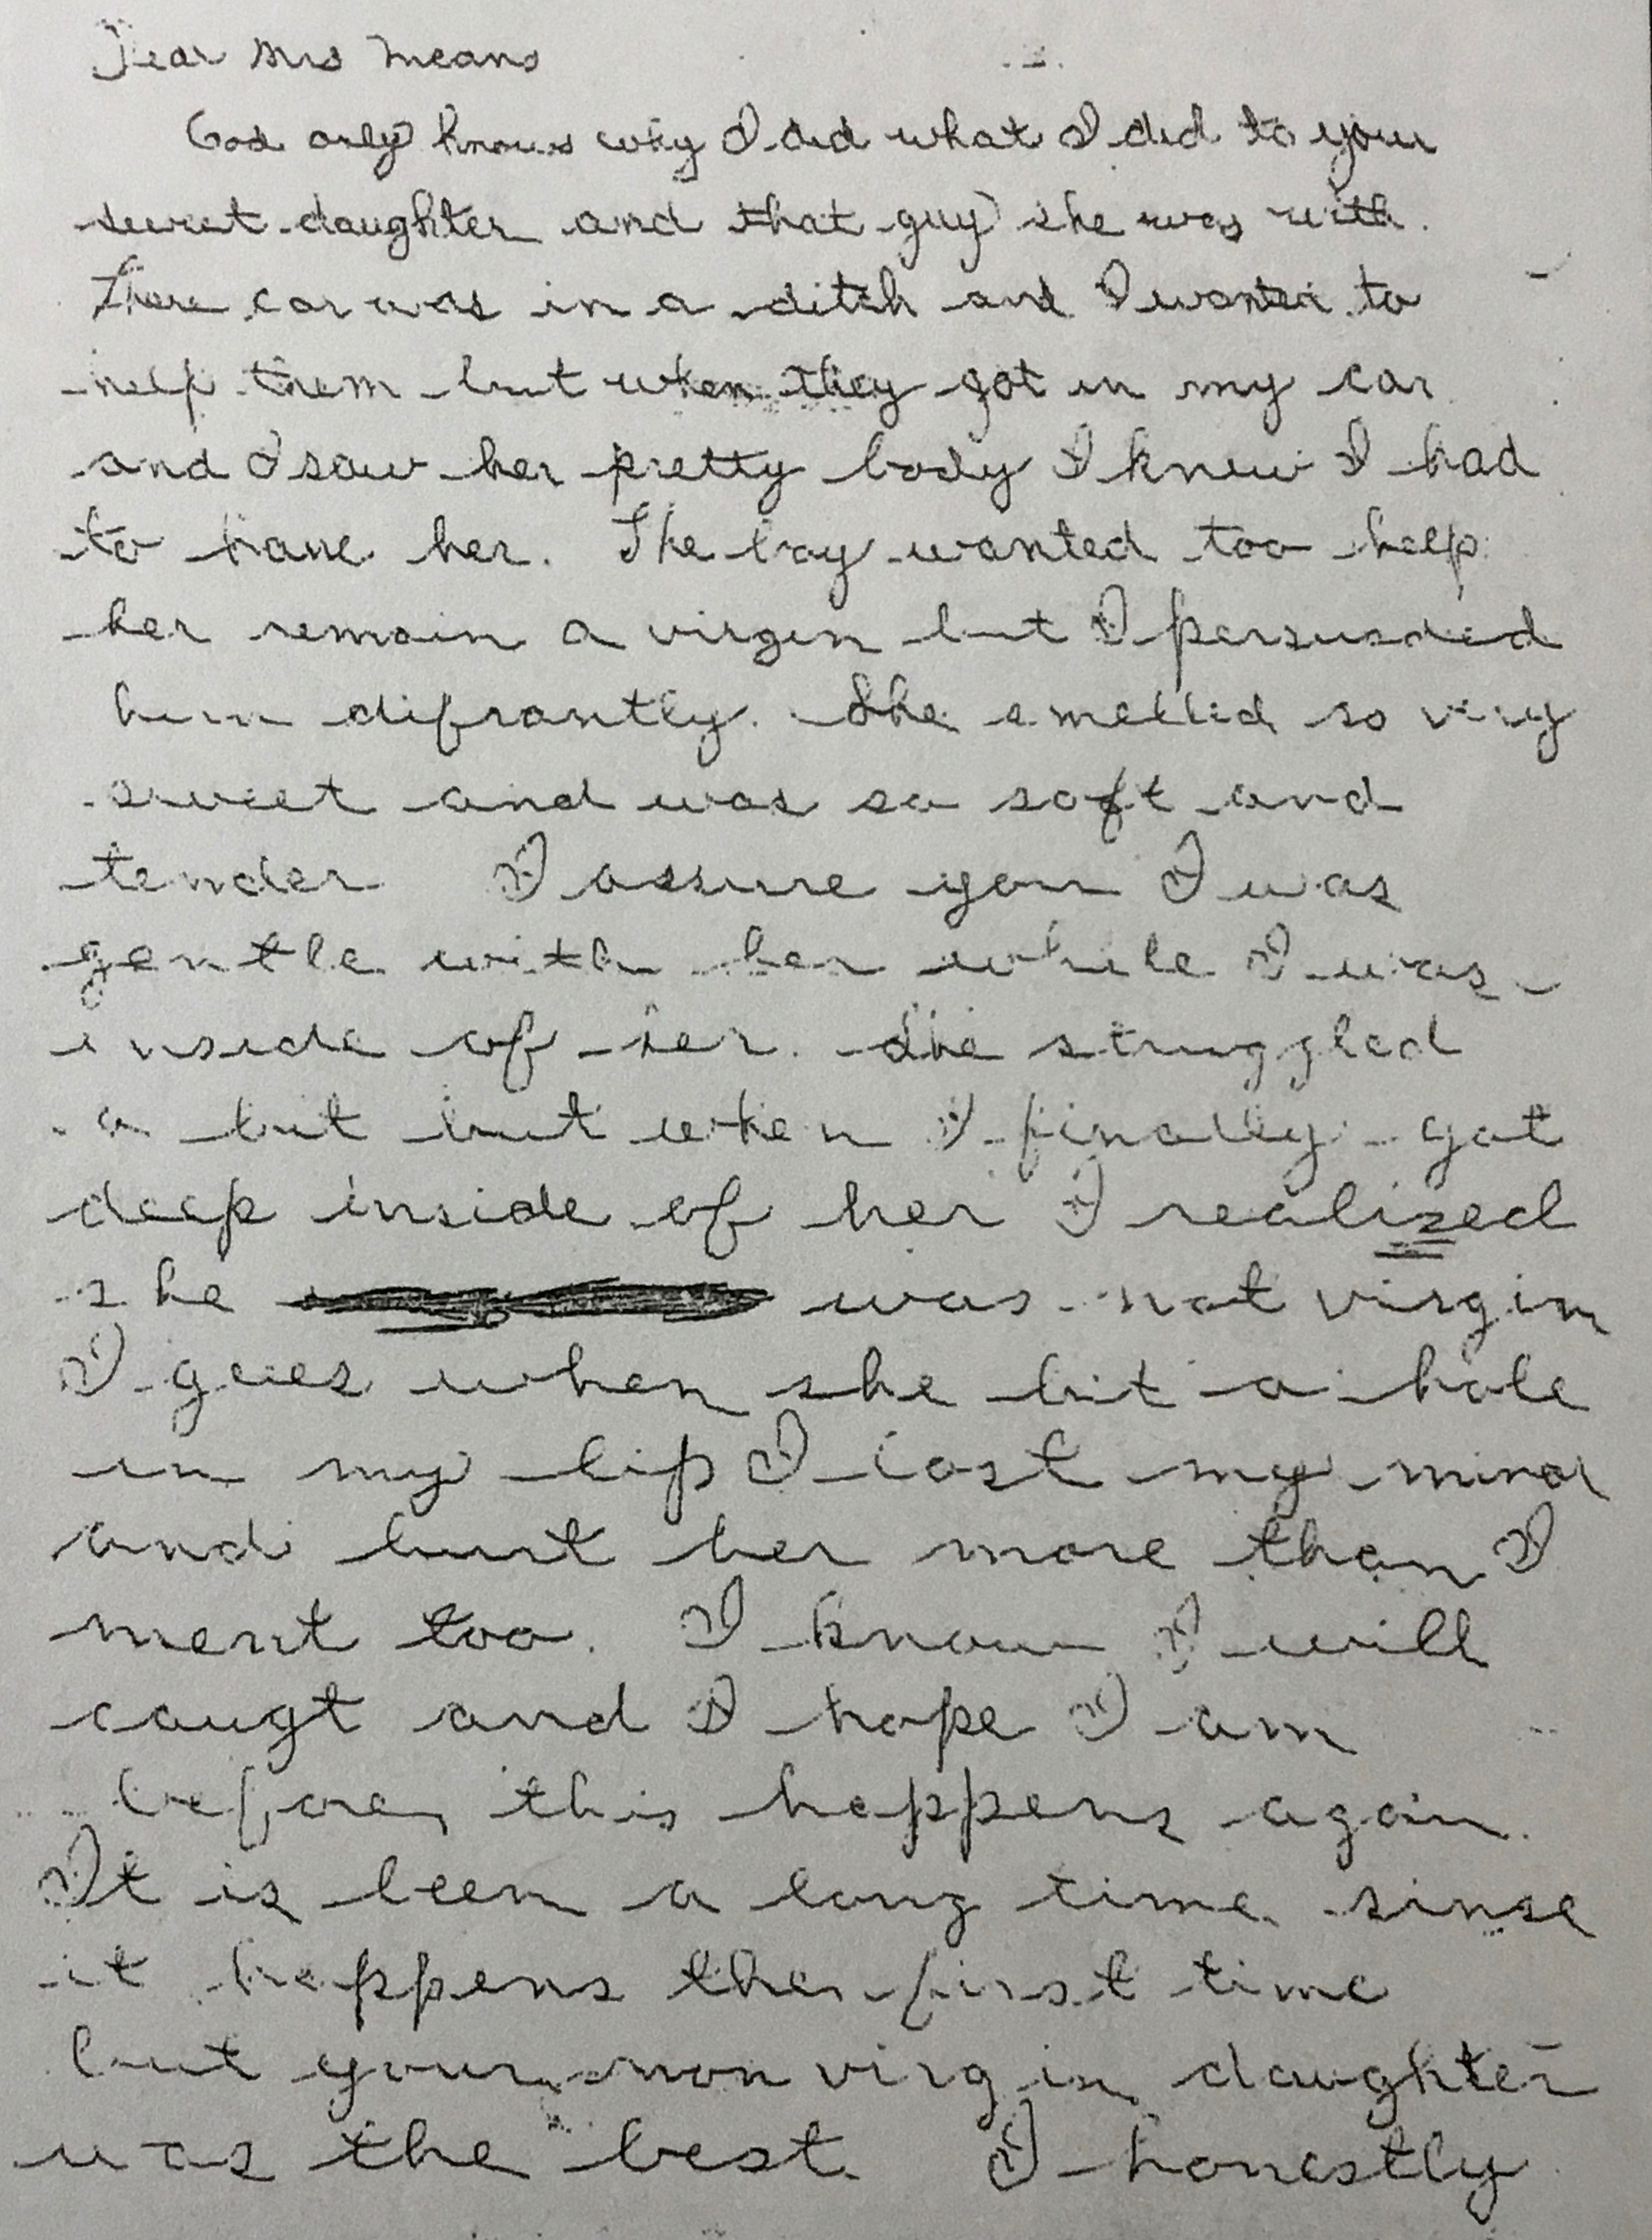 Dear Mrs Means
God only knows why I did what I did to your
sweet daughter and that guy she was with.
There car was in a ditch and I wanted to
help them but when they got in my car
and I saw her pretty body I knew I had
to have her. The boy wanted too help
her remain a virgin but I persuaded
him difrantly. She smelled so very
sweet and was so soft and
tender I assure you I was
gentle with her while I was
inside of her. She struggled
a bit but when I finally got
deep inside of her I realized
she was not virgin
I gues when she bit a hole
in my lip I lost my mind
and hurt her more than I
ment too. I know I will
caugt and I hope I am
before this happens again.
It is been a long time sinse
it happens the first time
but your non virgin daughter
was the best. I honestly